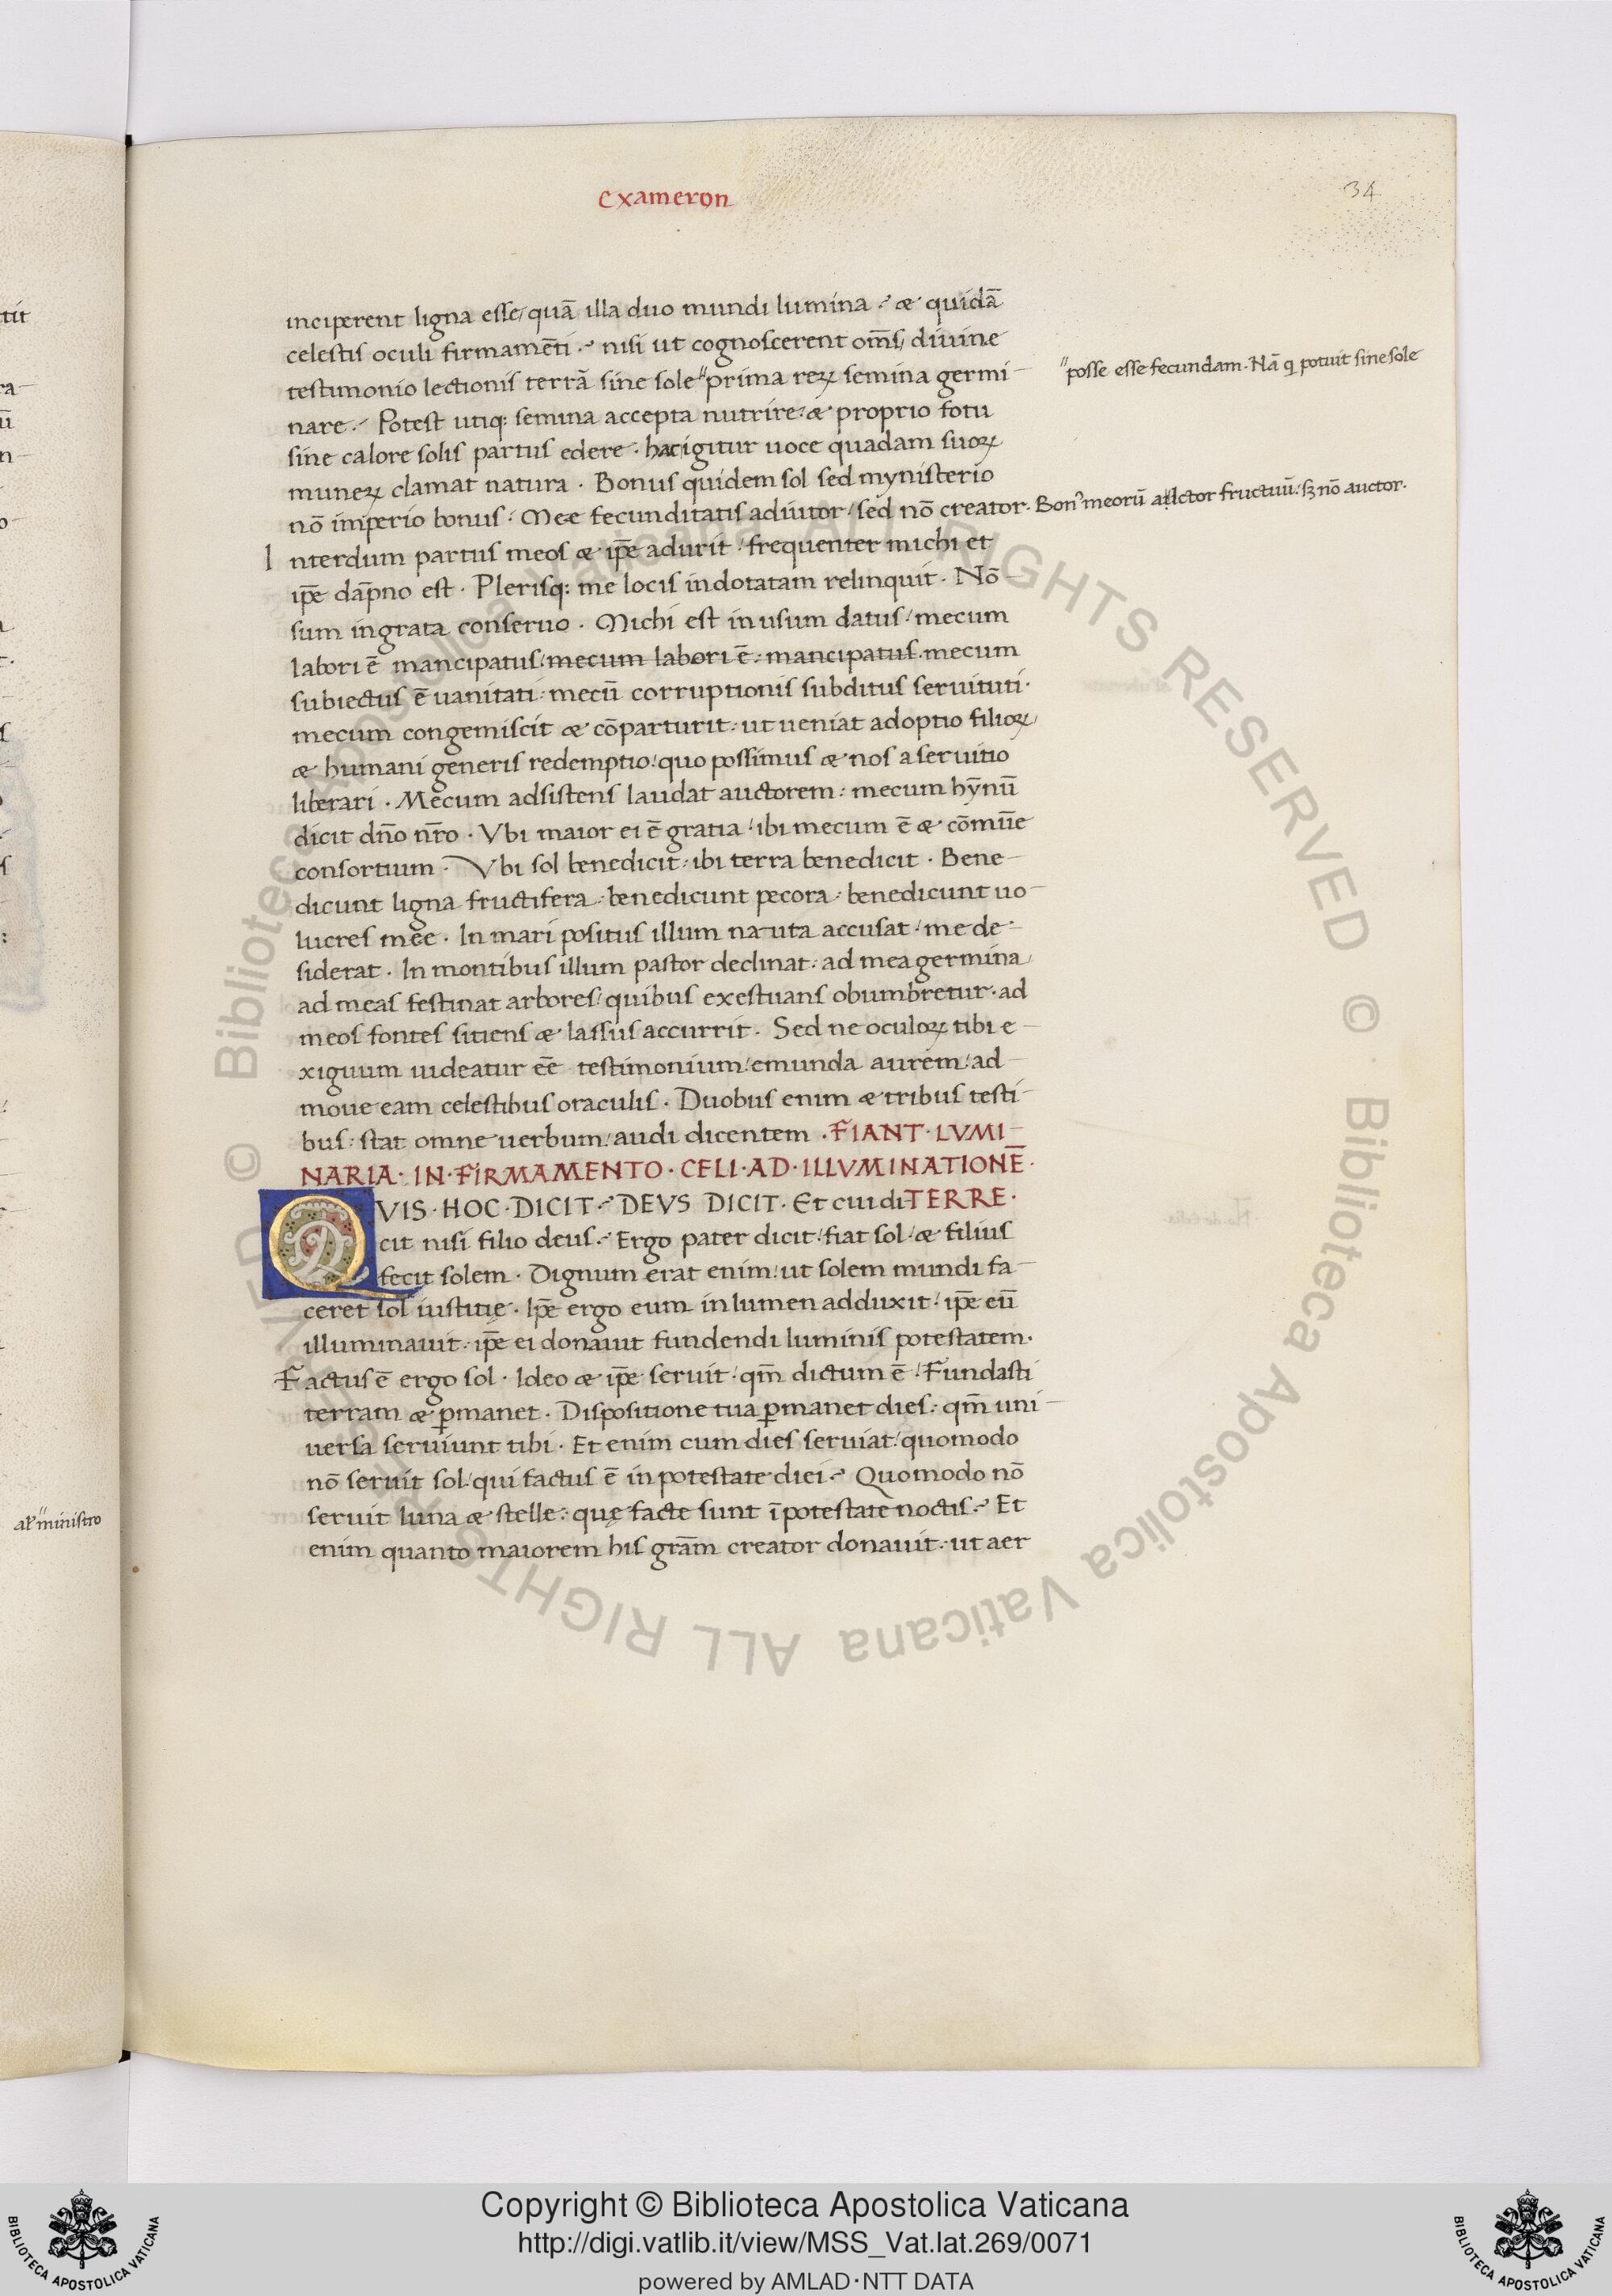 exameron
34
inciperent ligna esse, quā illa duo mundi lumina? & quidā
celestis oculi firmamēti? nisi ut cognoscerent om̄s, diuine
testimonio lectionis terrā sine sole prima reꝝ semina germi-
"posse esse fecundam. Nā q potuit sine sole
nare. Potest utiq; semina accepta nutrire: & proprio fotu
sine calore solis partus edere. hac igitur uoce quadam suoꝝ
muneꝝ clamat natura. Bonus quidem sol sed mynisterio
nō imperio bonus. Mee fecunditatis adiutor, sed nō creator. Bonꝰ meorū altor fructuū: sꝫ nō auctor.
Interdum partus meos & ip̄e adurit: frequenter michi et
ip̄e dāpno est. Plerisq: me locis indotatam relinquit. Nō
sum ingrata conseruo. Michi est in usum datus: mecum
labori ē mancipatus: mecum labori ē: mancipatus. mecum
subiectus ē uanitati: mecū corruptionis subditus seruituti.
mecum congemiscit & cōparturit: ut ueniat adoptio filioꝝ,
& humani generis redemptio: quo possimus & nos a seruitio
liberari. Mecum adsistens laudat auctorem: mecum hȳnū
dicit dn̄o nr̄o. Vbi maior ei ē gratia: ibi mecum ē & cōmūe
consortium. Vbi sol benedicit: ibi terra benedicit. Bene-
dicunt ligna fructifera: benedicunt pecora: benedicunt uo-
lucres mee. In mari positus illum nauta accusat: me de-
siderat. In montibus illum pastor declinat: ad mea germina,
ad meas festinat arbores: quibus exestuans obumbretur. ad
meos fontes sitiens & lassus accurrit. Sed ne oculoꝝ tibi e-
xiguum uideatur eē testimonium: emunda aurem: ad-
moue eam celestibus oraculis. Duobus enim & tribus testi-
bus: stat omne uerbum: audi dicentem. FIANT. LVMI-
NARIA. IN. FIRMAMENTO. CELI. AD. ILLVMINATIONĒ.
QVIS. HOC. DICIT? DEVS DICIT. Et cui di TERRE.
cit nisi filio deus? Ergo pater dicit: fiat sol: & filius
fecit solem. Dignum erat enim: ut solem mundi fa-
ceret sol iustitię. Ip̄e ergo eum in lumen adduxit: ip̄e eū
illuminauit: ip̄e ei donauit fundendi luminis potestatem.
Factus ē ergo sol. Ideo & ip̄e seruit: qm̄ dictum ē: Fundasti
terram & ꝑmanet. Dispositione tua ꝑmanet dies: qm̄ uni-
uersa seruiunt tibi. Et enim cum dies seruiat: quomodo
nō seruit sol: qui factus ē in potestate diei? Quomodo nō
seruit luna & stelle: quę facte sunt ī potestate noctis? Et
enim quanto maiorem his grām creator donauit: ut aer
ministro
© Biblioteca Apostolica Vaticana ALL RIGHTS RESERVED
Copyright © Biblioteca Apostolica Vaticana
http://digi.vatlib.it/view/MSS_Vat.lat.269/0071
powered by AMLAD·NTT DATA
BIBLIOTECA APOSTOLICA VATICANA
BIBLIOTECA APOSTOLICA VATICANA